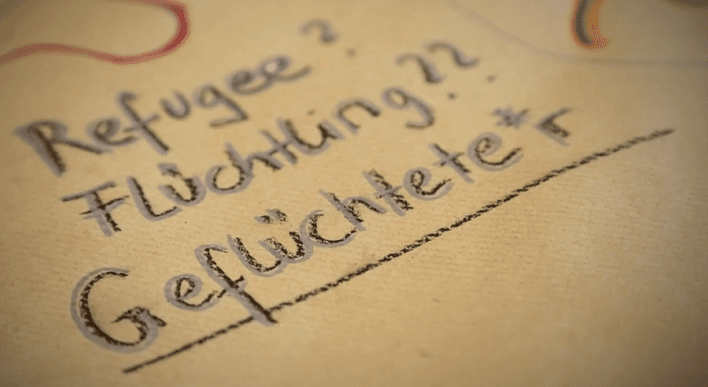 Refugee?
Flüchtling??
Geflüchtete*r